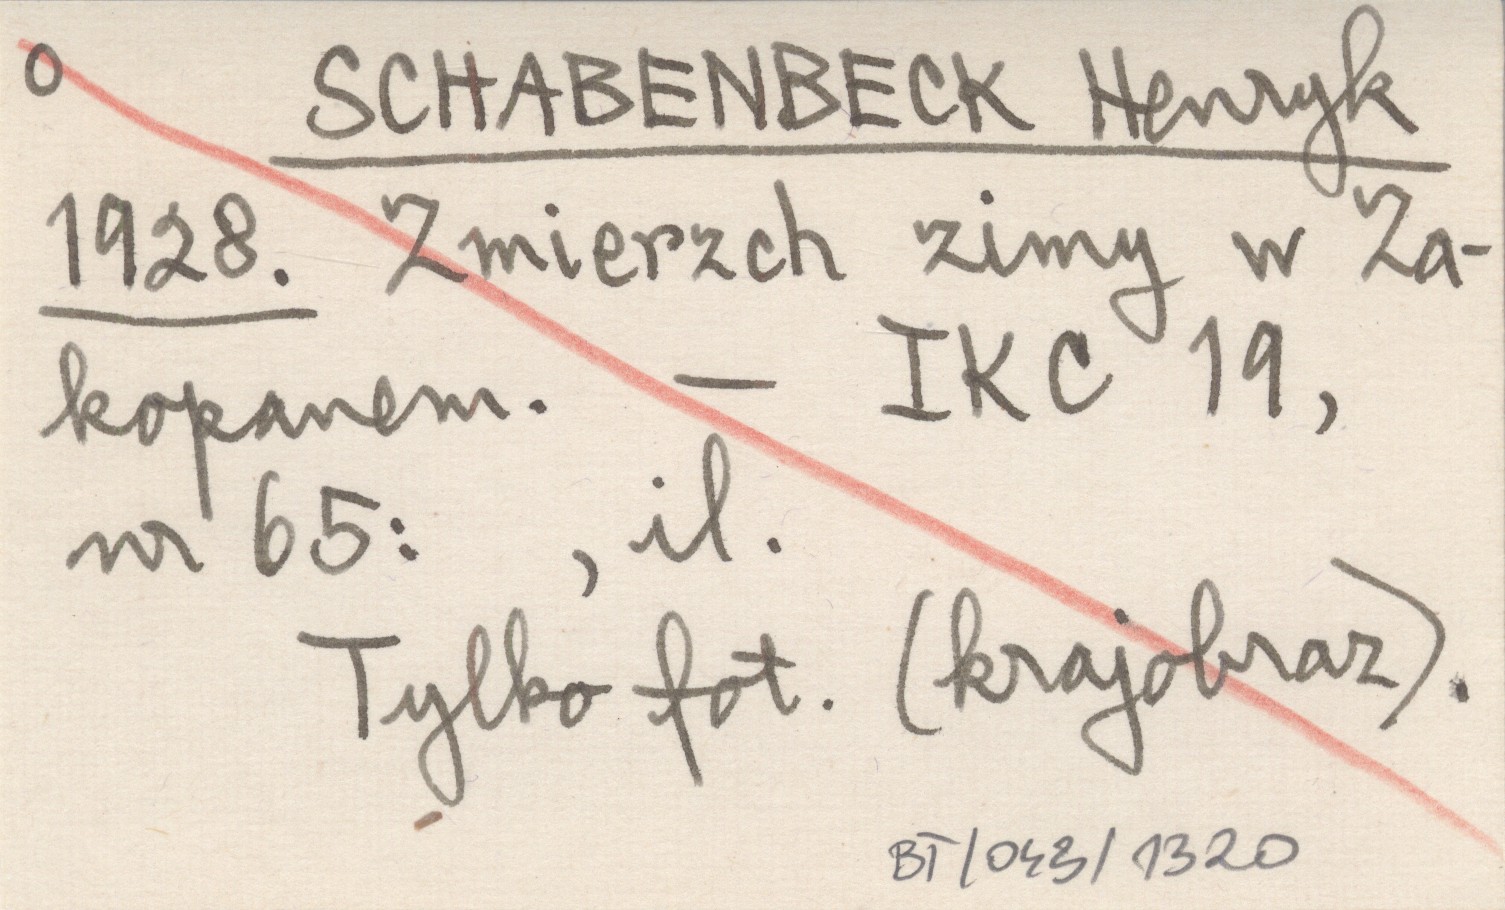 o SCHABENBECK Henryk
1928. Zmierzch zimy w Za-
kopanem. — IKC 19,
nr 65: , il.
Tylko fot. (krajobraz).
BT/043/1320